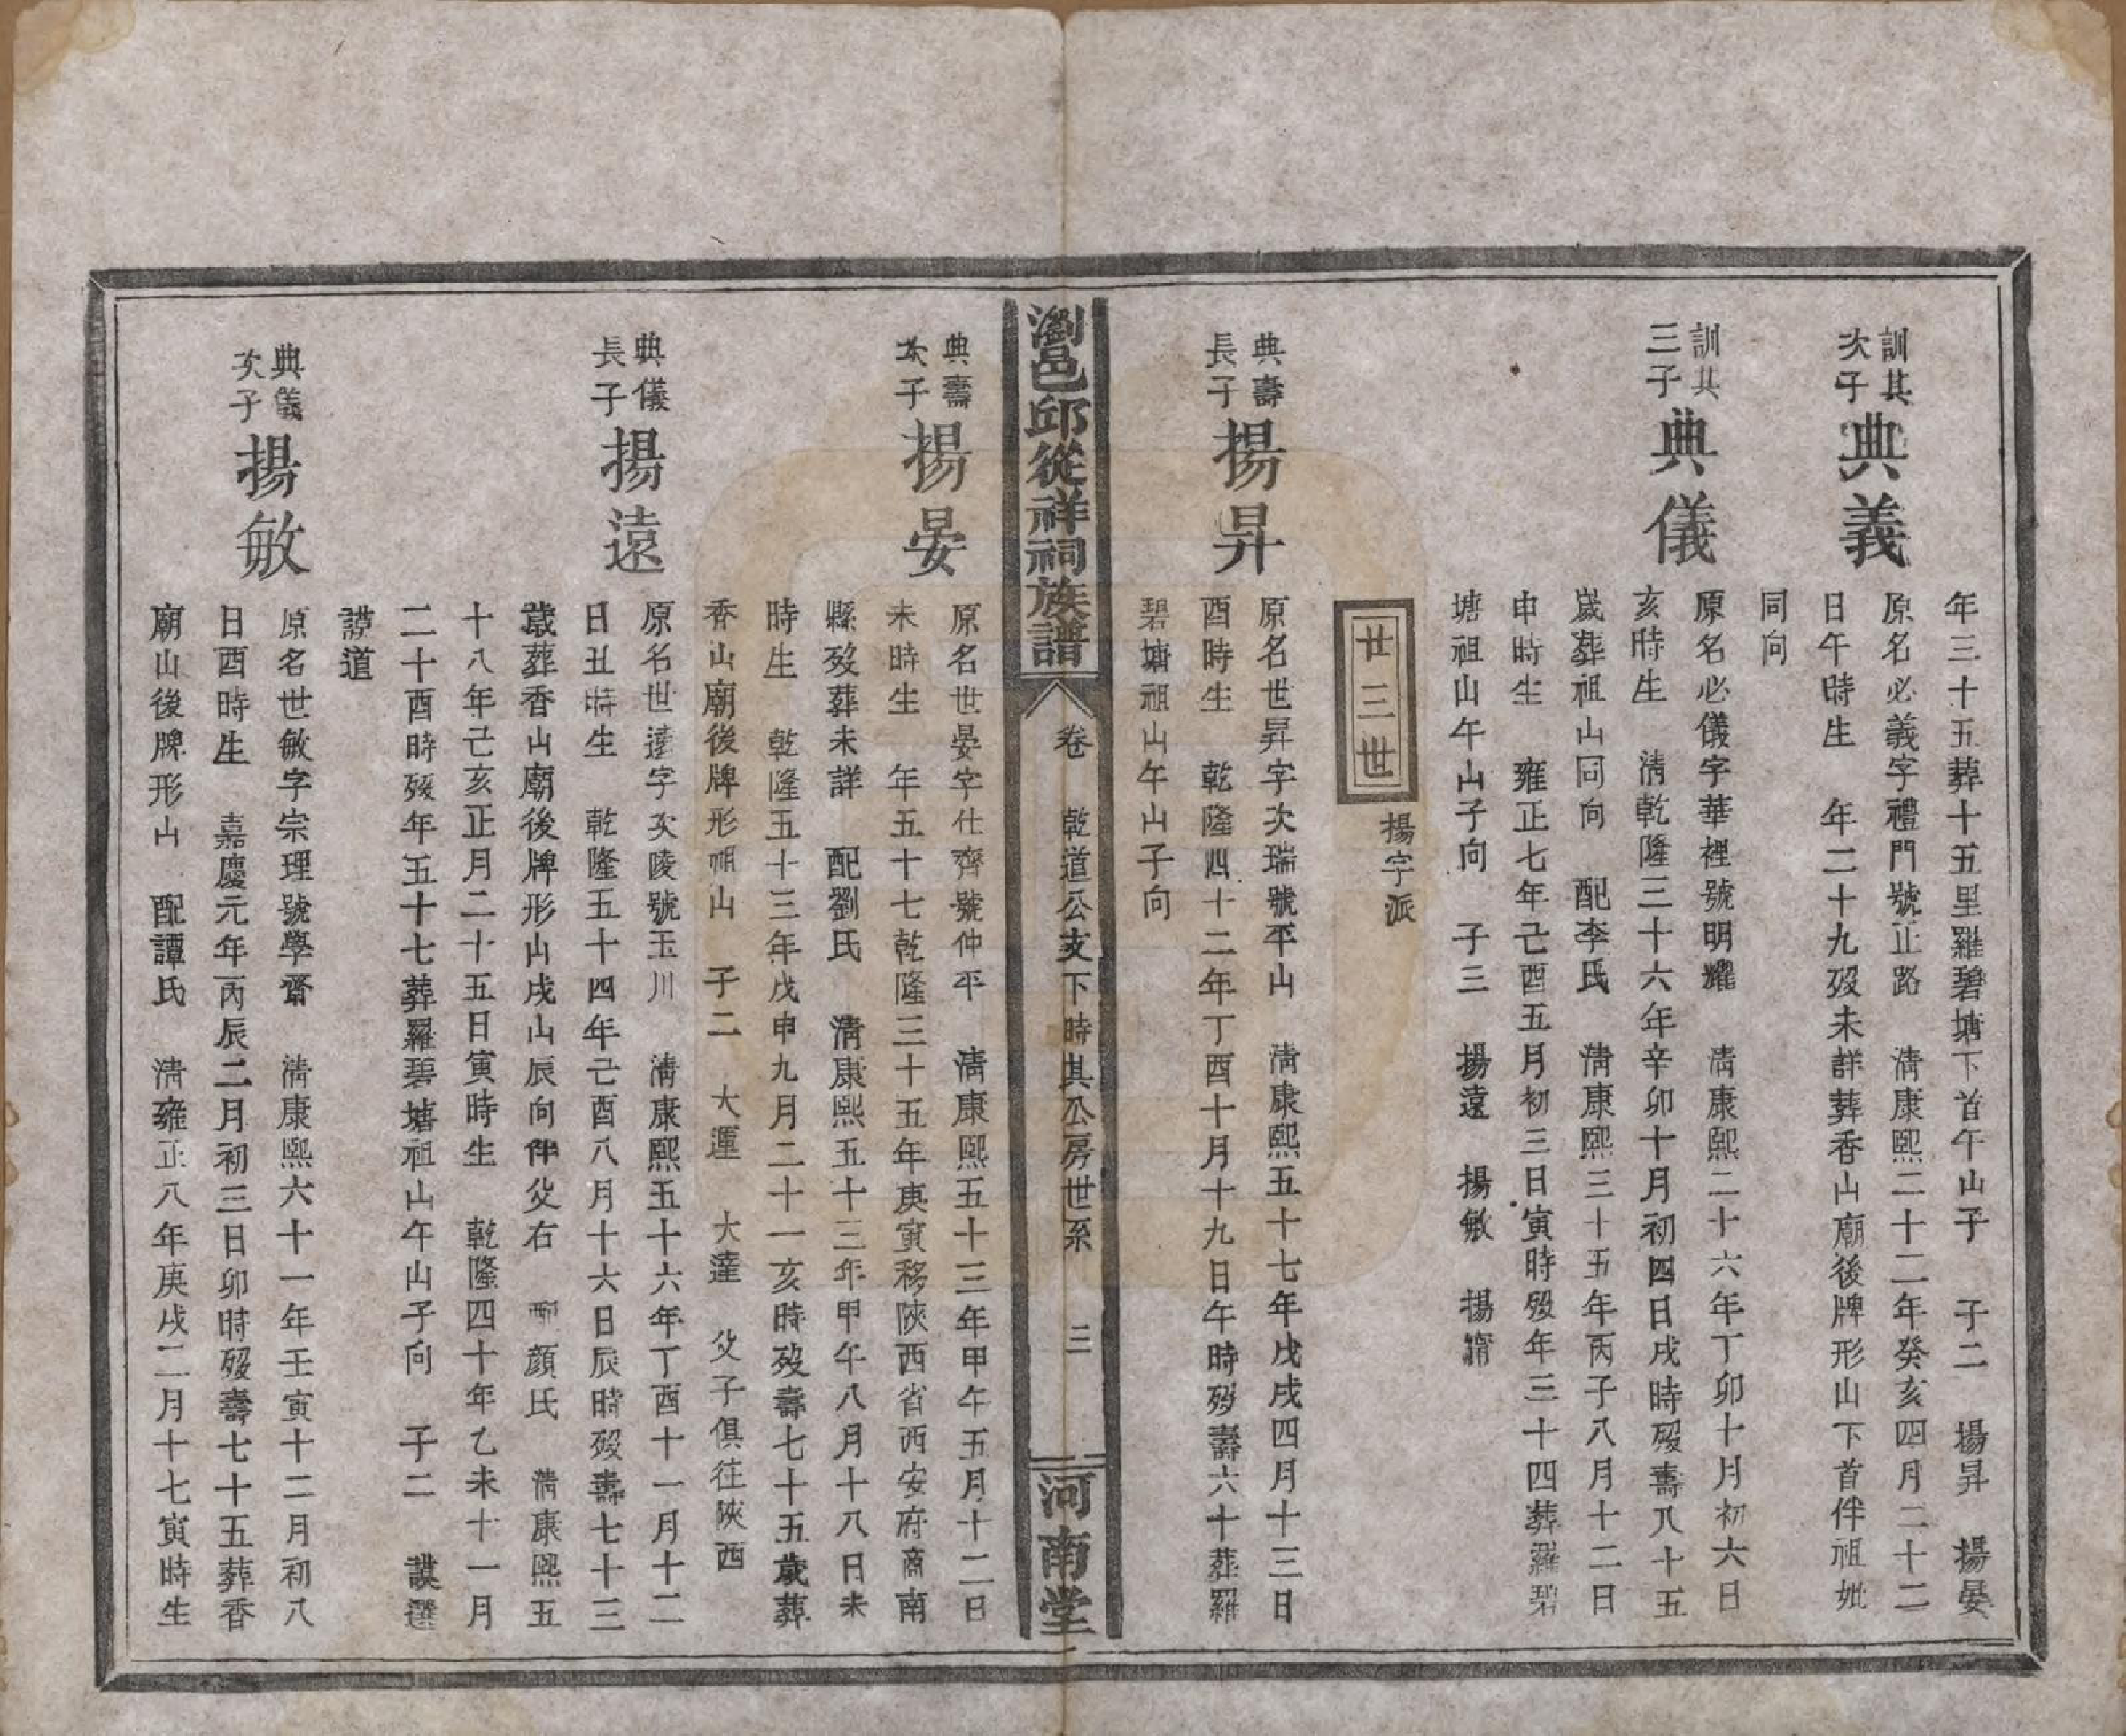 年三十五葬十五里羅碧塘下首午山子　子二　揚昇　揚晏
訓其次子
典義
原名必義字禮門號正路　淸康熙二十二年癸亥四月二十二
日午時生　年二十九歿未詳葬香山廟後牌形山下首伴祖妣
同向
訓其三子
典儀
原名必儀字華裡號明耀　淸康熙二十六年丁卯十月初六日
亥時生　淸乾隆三十六年辛卯十月初四日戌時歿壽八十五
歲葬祖山同向　配李氏　淸康熙三十五年丙子八月十二日
申時生　雍正七年己酉五月初三日寅時歿年三十四葬羅碧
塘祖山午山子向　子三　揚遠　揚敏　揚
廿三世
揚字派
典壽長子
揚昇
原名世昇字次瑞號平山　淸康熙五十七年戊戌四月十三日
酉時生　乾隆四十二年丁酉十月十九日午時歿壽六十葬羅
碧塘祖山午山子向
瀏邑邱從祥祠族譜
卷　乾道公支下時其公房世系　三
河南堂
典壽次子
揚晏
原名世晏字仕齊號仲平　淸康熙五十三年甲午五月十二日
未時生　年五十七乾隆三十五年庚寅移陝西省西安府商南
縣歿葬未詳　配劉氏　淸康熙五十三年甲午八月十八日未
時生　乾隆五十三年戊申九月二十一亥時歿壽七十五歲葬
香山廟後牌形祖山　子二　大運　大達　父子俱往陝西
典儀長子
揚遠
原名世遠字次陵號玉川　淸康熙五十六年丁酉十一月十二
日丑時生　乾隆五十四年己酉八月十六日辰時歿壽七十三
歲葬香山廟後牌形山戌山辰向伴父右　配顏氏　淸康熙五
十八年己亥正月二十五日寅時生　乾隆四十年乙未十一月
二十酉時歿年五十七葬羅碧塘祖山午山子向　子二　謨選
謨道
典儀次子
揚敏
原名世敏字宗理號學齋　淸康熙六十一年壬寅十二月初八
日酉時生　嘉慶元年丙辰二月初三日卯時歿壽七十五葬香
廟山後牌形山　配譚氏　淸雍正八年庚戌二月十七寅時生